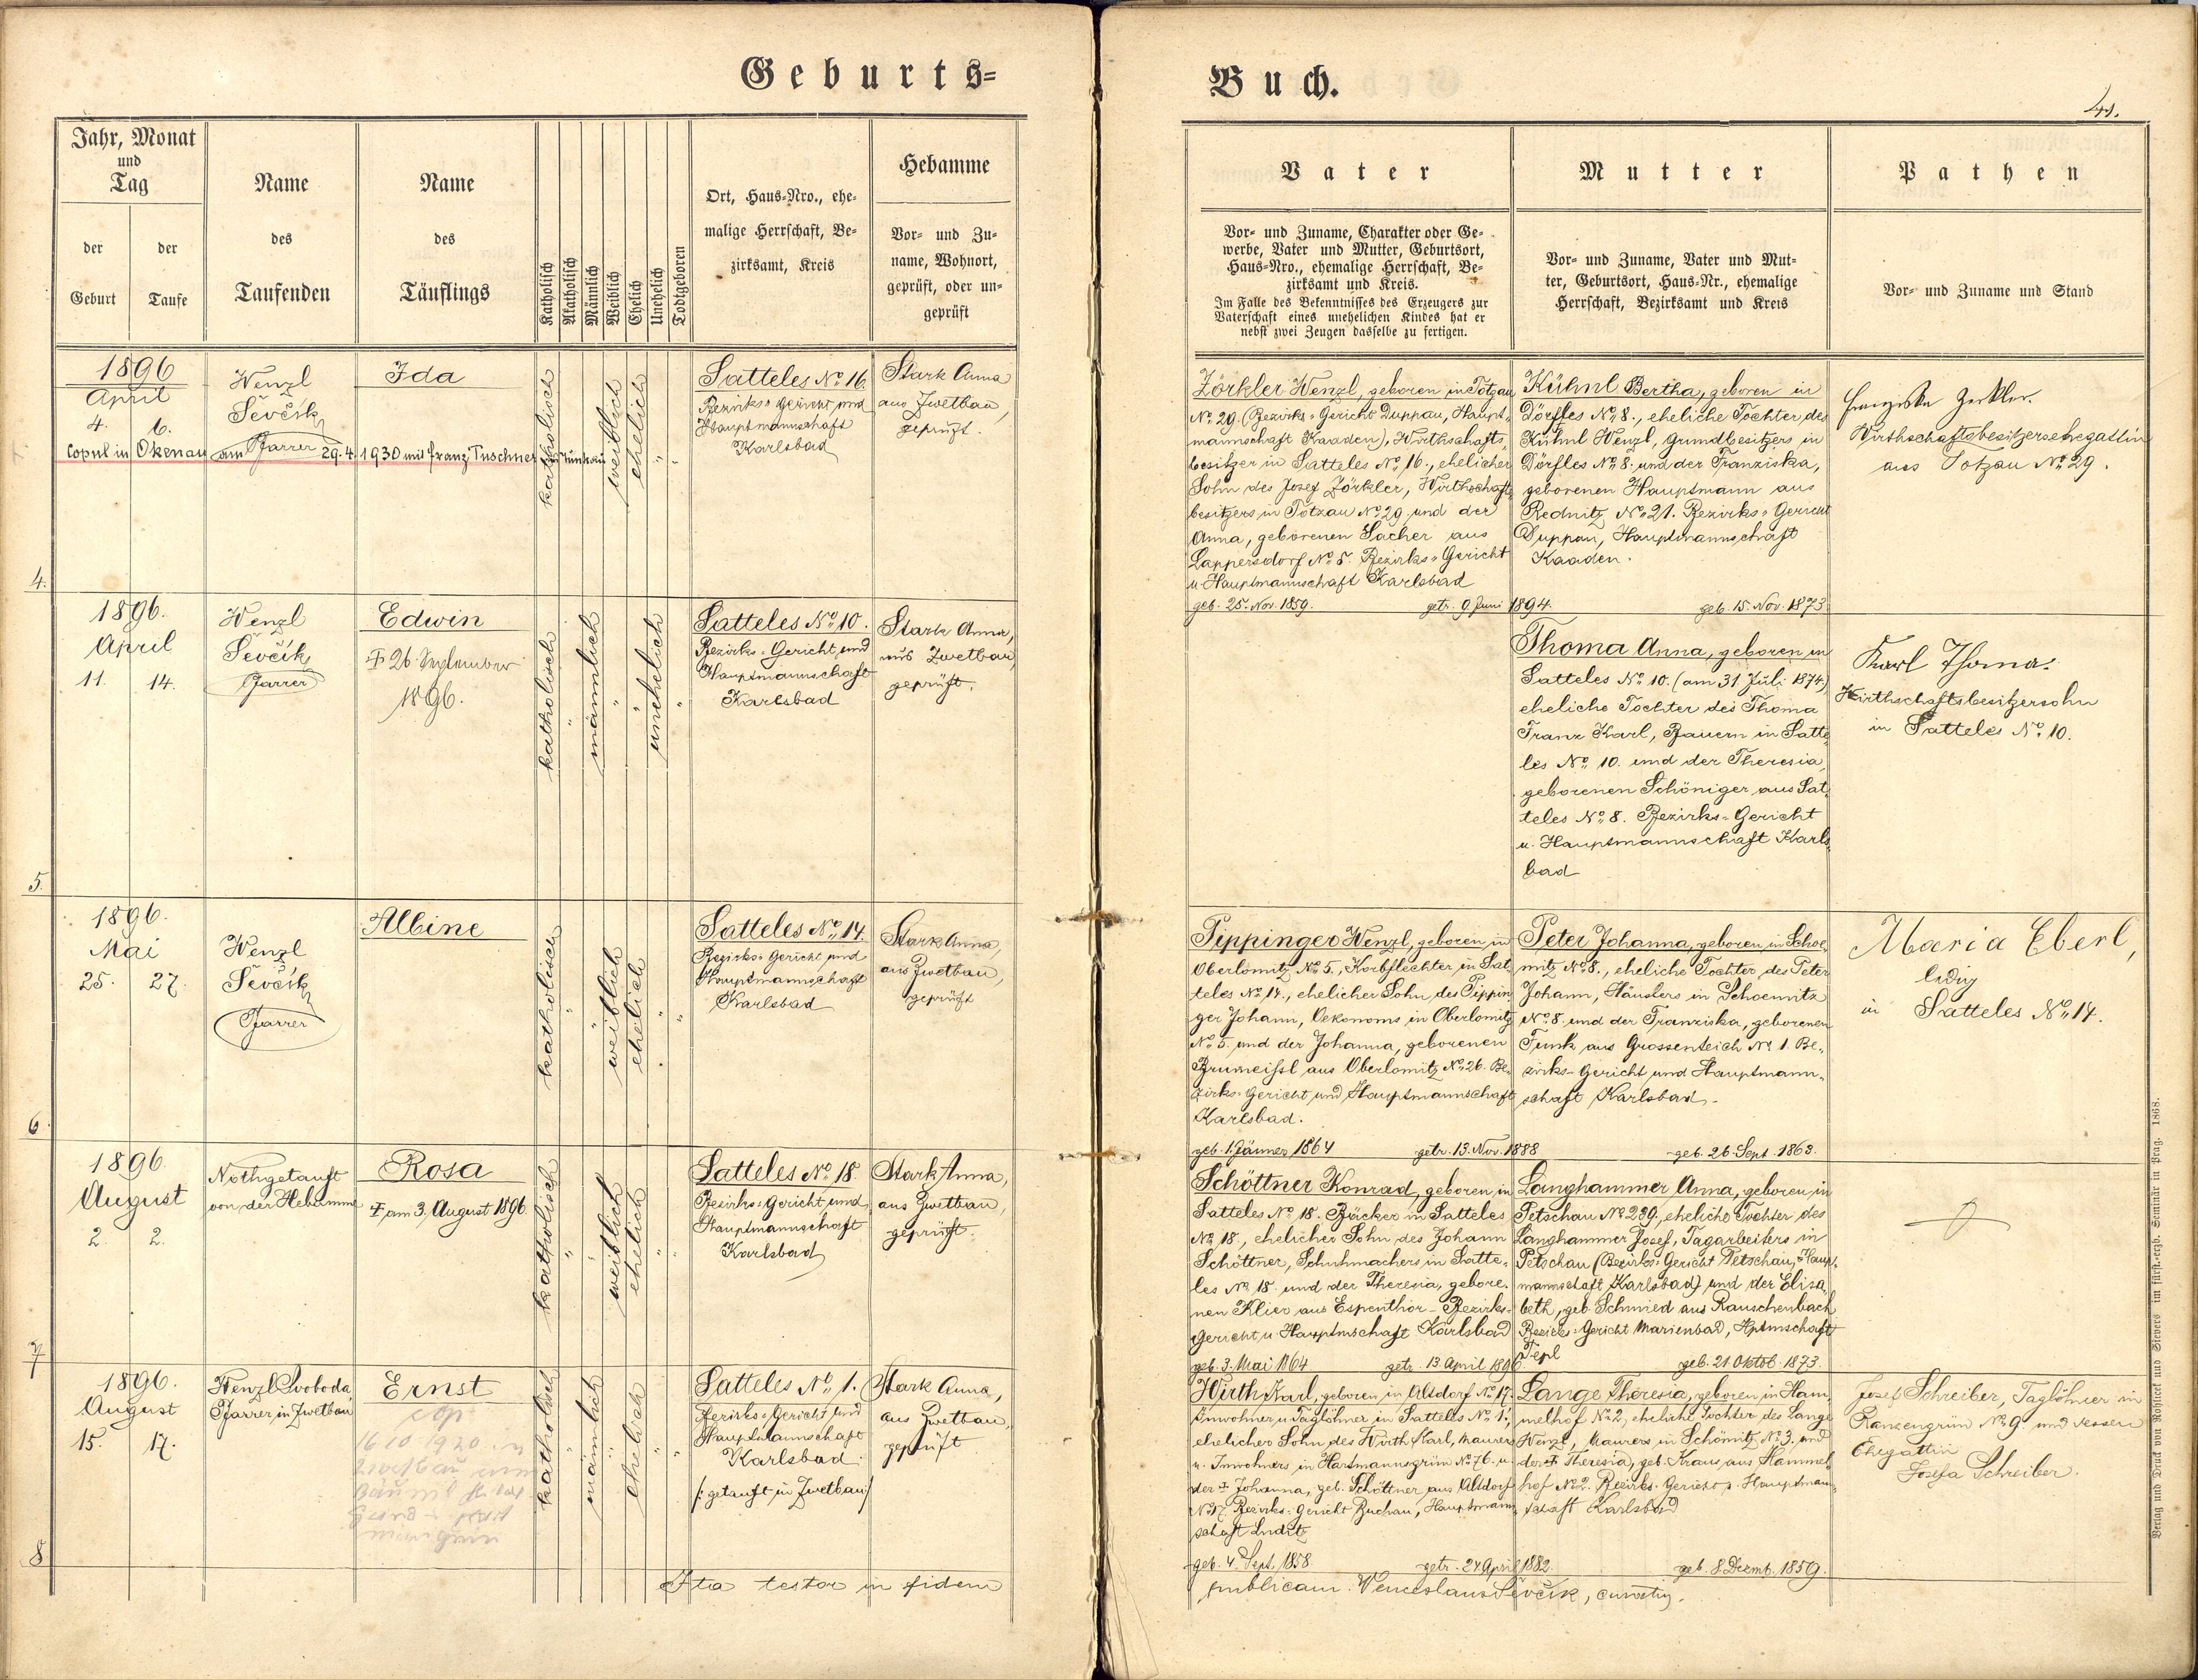 Geburts=
Buch.
41.
Jahr, Monat
und
Tag
der
Geburt
der
Taufe
Name
des
Taufenden
Name
des
Täuflings
Katholisch
Akatholisch
Männlich
Weiblich
Ehelich
Unehelich
Todtgeboren
Ort, Haus=Nro., ehe=
malige Herrschaft, Be=
zirksamt, Kreis
Hebamme
Vor= und Zu=
name, Wohnort,
geprüft, oder un=
geprüft
Vater
Vor= und Zuname, Charakter oder Ge=
werbe, Vater und Mutter, Geburtsort,
Haus=Nro., ehemalige Herrschaft, Be=
zirksamt und Kreis.
Im Falle des Bekenntnisses des Erzeugers zur
Vaterschaft eines unehelichen Kindes hat er
nebst zwei Zeugen dasselbe zu fertigen.
Mutter
Vor= und Zuname, Vater und Mut=
ter, Geburtsort, Haus=Nr., ehemalige
Herrschaft, Bezirksamt und Kreis
Pathen
Vor= und Zuname und Stand
4.
1896
April
4. 6.
Wenzl
Ševčik
Pfarrer
Ida
Copul in Okenau am 29.4.1930 mit Franz Tuschner
katholisch
weiblich
ehelich
Satteles No. 16.
Bezirks=Gericht und
Hauptmannschaft
Karlsbad
Stark Anna
aus Zwetbau,
geprüft.
Zörkler Wenzl, geboren in Totzau
No. 29 (Bezirks=Gericht Duppau, Haupt=
mannschaft Kaaden), Wirthschafts=
besitzer in Satteles No. 16., ehelicher
Sohn des Josef Zörkler, Wirthschafts=
besitzers in Totzau No. 29 und der
Anna, geborenen Sacher aus
Lappersdorf No. 5. Bezirks=Gericht
u. Hauptmannschaft Karlsbad
geb. 25. Nov. 1859. getr. 9 Juni 1894.
Kühnl Bertha, geboren in
Dörfles No. 8., eheliche Tochter des
Kühnl Wenzl, Grundbesitzers in
Dörfles No. 8. und der Franziska,
geborenen Hauptmann aus
Rednitz No. 21. Bezirks=Gericht
Duppau, Hauptmannschaft
Kaaden.
geb. 15. Nov. 1873
Franziska Zerkler.
Wirthschaftsbesitzersehegattin
aus Totzau No. 29.
5.
1896.
April
11. 14.
Wenzl
Ševčik
Pfarrer
Edwin
† 26. September
1896.
katholisch
männlich
unehelich
Satteles No. 10.
Bezirks=Gericht und
Hauptmannschaft
Karlsbad
Stark Anna,
aus Zwetbau
geprüft.
Thoma Anna, geboren in
Satteles No. 10. (am 31 Juli 1874)
eheliche Tochter des Thoma
Franz Karl, Bauern in Satte=
les No. 10. und der Theresia,
geborenen Schöniger aus Sat=
teles No. 8. Bezirks=Gericht
u. Hauptmannschaft Karls=
bad
Karl Thoma.
Wirthschaftsbesitzersohn
in Satteles No. 10.
6
1896.
Mai
25. 27.
Wenzl
Ševčik
Pfarrer
Albine
katholisch
weiblich
ehelich
Satteles No. 14.
Bezirks=Gericht und
Hauptmannschaft
Karlsbad
Stark Anna,
aus Zwetbau,
geprüft
Pippinger Wenzl, geboren in
Oberlomitz No. 5., Korbflechter in Sat=
teles No. 14., ehelicher Sohn des Pippin=
ger Johann, Oekonoms in Oberlomitz
No. 5. und der Johanna, geborenen
Brumeissl aus Oberlomitz No. 26. Be=
zirks=Gericht und Hauptmannschaft
Karlsbad.
geb. 1. Jänner 1864 getr. 13. Nov. 1888
Peter Johanna, geboren in Schoe=
mitz No. 8., eheliche Tochter des Peter
Johann, Häuslers in Schoemitz
No. 8. und der Franziska, geborenen
Funk aus Grossenteich No. 1. Be=
zirks=Gericht und Hauptmann=
schaft Karlsbad.
geb. 26. Sept. 1863.
Maria Eberl,
ledig
in Satteles No. 14.
7
1896.
August
2. 2.
Nothgetauft
von der Hebamme
Rosa
† am 3. August 1896.
katholisch
weiblich
ehelich
Satteles No. 18.
Bezirks=Gericht und
Hauptmannschaft
Karlsbad
Stark Anna,
aus Zwetbau,
geprüft.
Schöttner Konrad, geboren in
Satteles No. 18. Bäcker in Satteles
No. 18., ehelicher Sohn des Johann
Schöttner, Schuhmachers in Satte=
les No. 18. und der Theresia, gebore=
nen Klier aus Espenthor - Bezirks=
Gericht u. Hauptmschaft Karlsbad
geb. 3. Mai 1864 getr. 13. April 1896
Langhammer Anna, geboren in
Petschau No. 239, eheliche Tochter des
Langhammer Josef, Tagarbeiters in
Petschau (Bezirks=Gericht Petschau, Haupt=
mannschaft Karlsbad) und der Elisa=
beth, geb. Schmied aus Rauschenbach
Bezirks=Gericht Marienbad, Hptmschaft
Tepl
geb. 21. Oktob. 1873.
8
1896.
August
15. 17.
Wenzl Svoboda,
Pfarrer in Zwetbau
Ernst
cop
16 10 1920 in
katholisch
männlich
ehelich
Satteles No. 1.
Bezirks=Gericht und
Hauptmannschaft
Karlsbad.
/: getauft in Zwetbau :/
Stark Anna,
aus Zwetbau,
geprüft
Wirth Karl, geboren in Altdorf No. 17.
Inwohner u. Taglöhner in Satteles No. 1.,
ehelicher Sohn des Wirth Karl, Maurers
u. Inwohners in Hartmannsgrün No. 76. u.
der † Johanna, geb. Schöttner aus Altdorf
No. 17. Bezirks=Gericht Buchau, Hauptmann=
schaft Luditz
geb. 4. Sept. 1858 getr. 24 April 1882.
Lange Theresia, geboren in Ham=
melhof No. 2, eheliche Tochter des Lange
Wenzl, Maurers in Schömitz No. 3. und
der † Theresia, geb. Kraus, aus Hammel=
hof No. 2. Bezirks=Gericht u. Hauptman=
schaft Karlsbad
geb. 8. Dezemb. 1859.
Josef Schreiber, Taglöhner in
Ranzengrün No. 9. und dessen
Ehegattin
Josefa Schreiber.
Ita testor in fidem
publicam. Venceslaus Ševčik,
Verlag und Druck von Rohliček und Sievers im fürst.=erzb. Seminär in Prag. 1868.